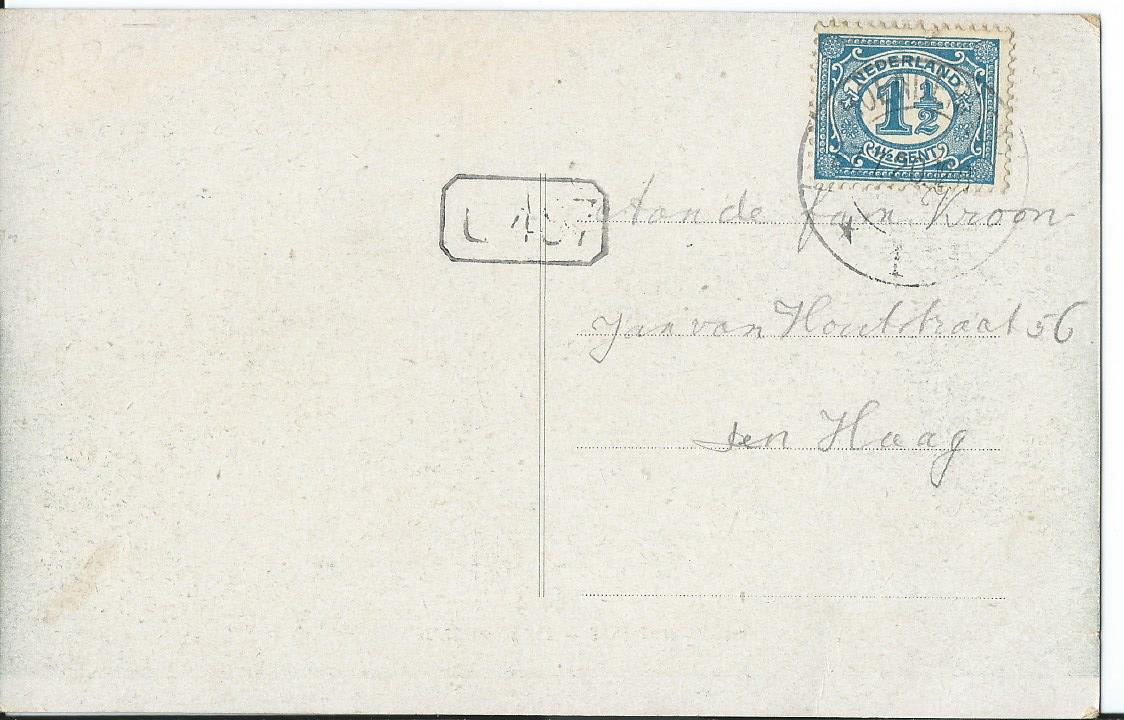 NEDERLAND
1½
1½ CENT
Aan de fam. Kroon
Jan van Houtstraat 56
den Haag
1